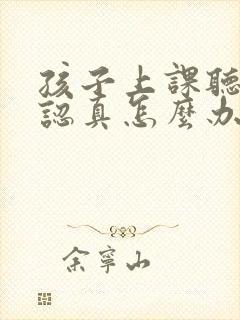 孩子上課聽
認真怎麼办
余寧山